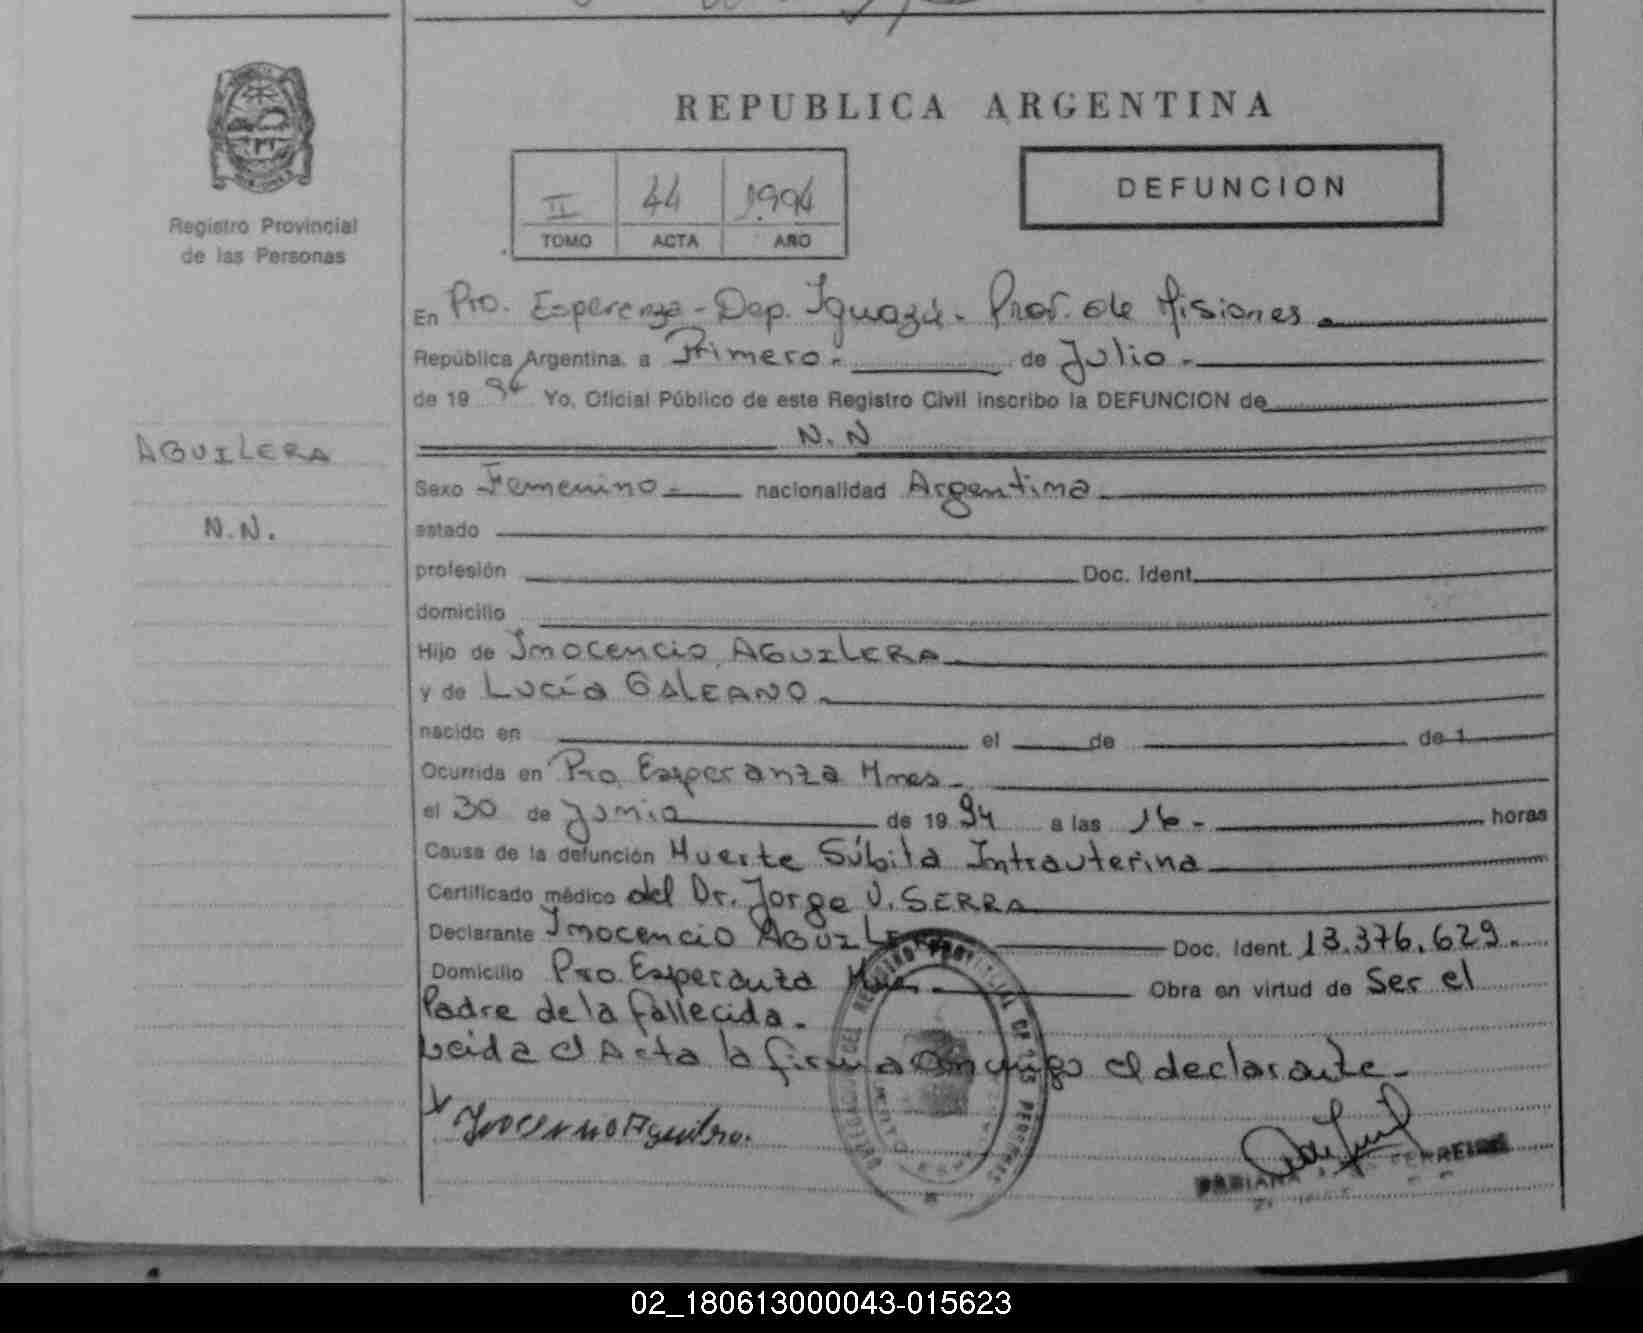 REPUBLICA ARGENTINA
II 44 1994
TOMO ACTA AÑO
DEFUNCION
Registro Provincial
de las Personas
En Pto. Esperanza - Dep. Iguazú - Prov. de Misiones.
República Argentina, a Primero.- de Julio.-
de 19 94 Yo, Oficial Público de este Registro Civil inscribo la DEFUNCION de
N.N
AGUILERA
N.N.
Sexo Femenino.- nacionalidad Argentina.
estado
profesión Doc. Ident.
domicilio
Hijo de Inocencio AGUILERA
y de Lucía GALEANO.
nacido en el de de 1
Ocurrida en Pto Esperanza Mnes.-
el 30 de Junio de 19 94 a las 16.- horas
Causa de la defunción Muerte Súbita Intrauterina
Certificado médico del Dr. Jorge V. SERRA
Declarante Inocencio AGUILERA Doc. Ident. 13.376.629.
Domicilio Pto Esperanza Mnes.- Obra en virtud de Ser el
Padre de la fallecida.-
Leida el Acta la firma conmigo el declarante.-
Inocencio Aguilera.
REGISTRO PROVINCIAL DE LAS PERSONAS
FABIANA FERREIRA
02_180613000043-015623